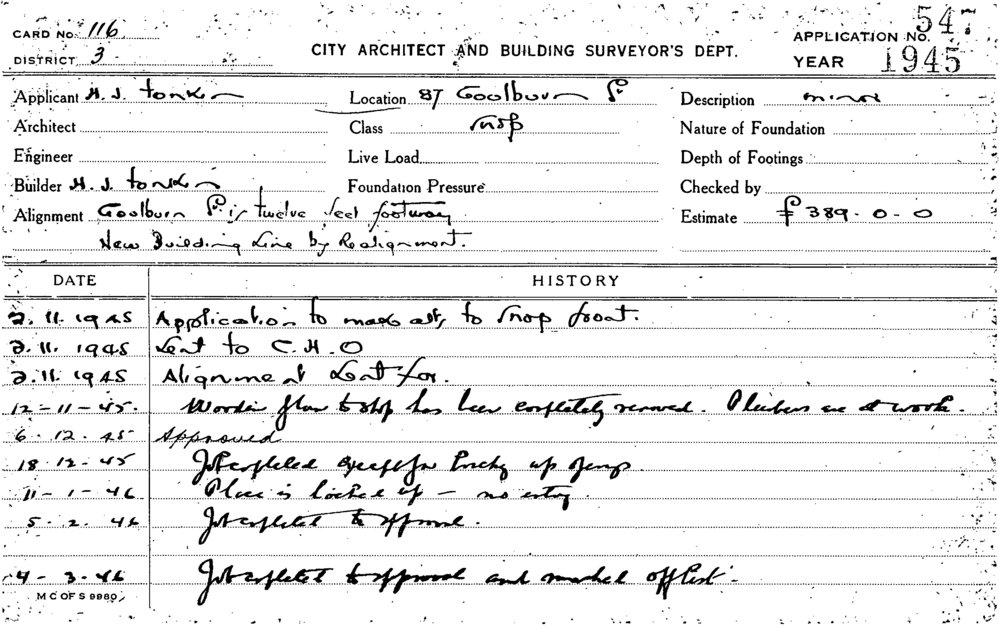 CARD No. 116
DISTRICT 3
CITY ARCHITECT AND BUILDING SURVEYOR'S DEPT.
APPLICATION No. 547
YEAR 1945
Applicant H. J. Tonkin
Location 87 Goulburn St
Description minor
Architect
Class Shop
Nature of Foundation
Engineer
Live Load
Depth of Footings
Builder H. J. Tonkin
Foundation Pressure
Checked by
Alignment Goulburn St is twelve feet footway
Estimate £ 389-0-0
New Building Line by Realignment.
DATE HISTORY
2.11.1945 Application to make alts to Shop front.
2.11.1945 Sent to C.H.O
2.11.1945 Alignment Sent for.
12-11-45. Wooden floor to shop has been completely removed. Plumbers are at work.
6.12.45 Approved
18.12.45 Job completed except for touching up
11-1-46 Place is locked up - no entry.
5.2.46 Job completed to approval.
4-3-46 Job completed to approval and marked off list.
M C OF S 9980